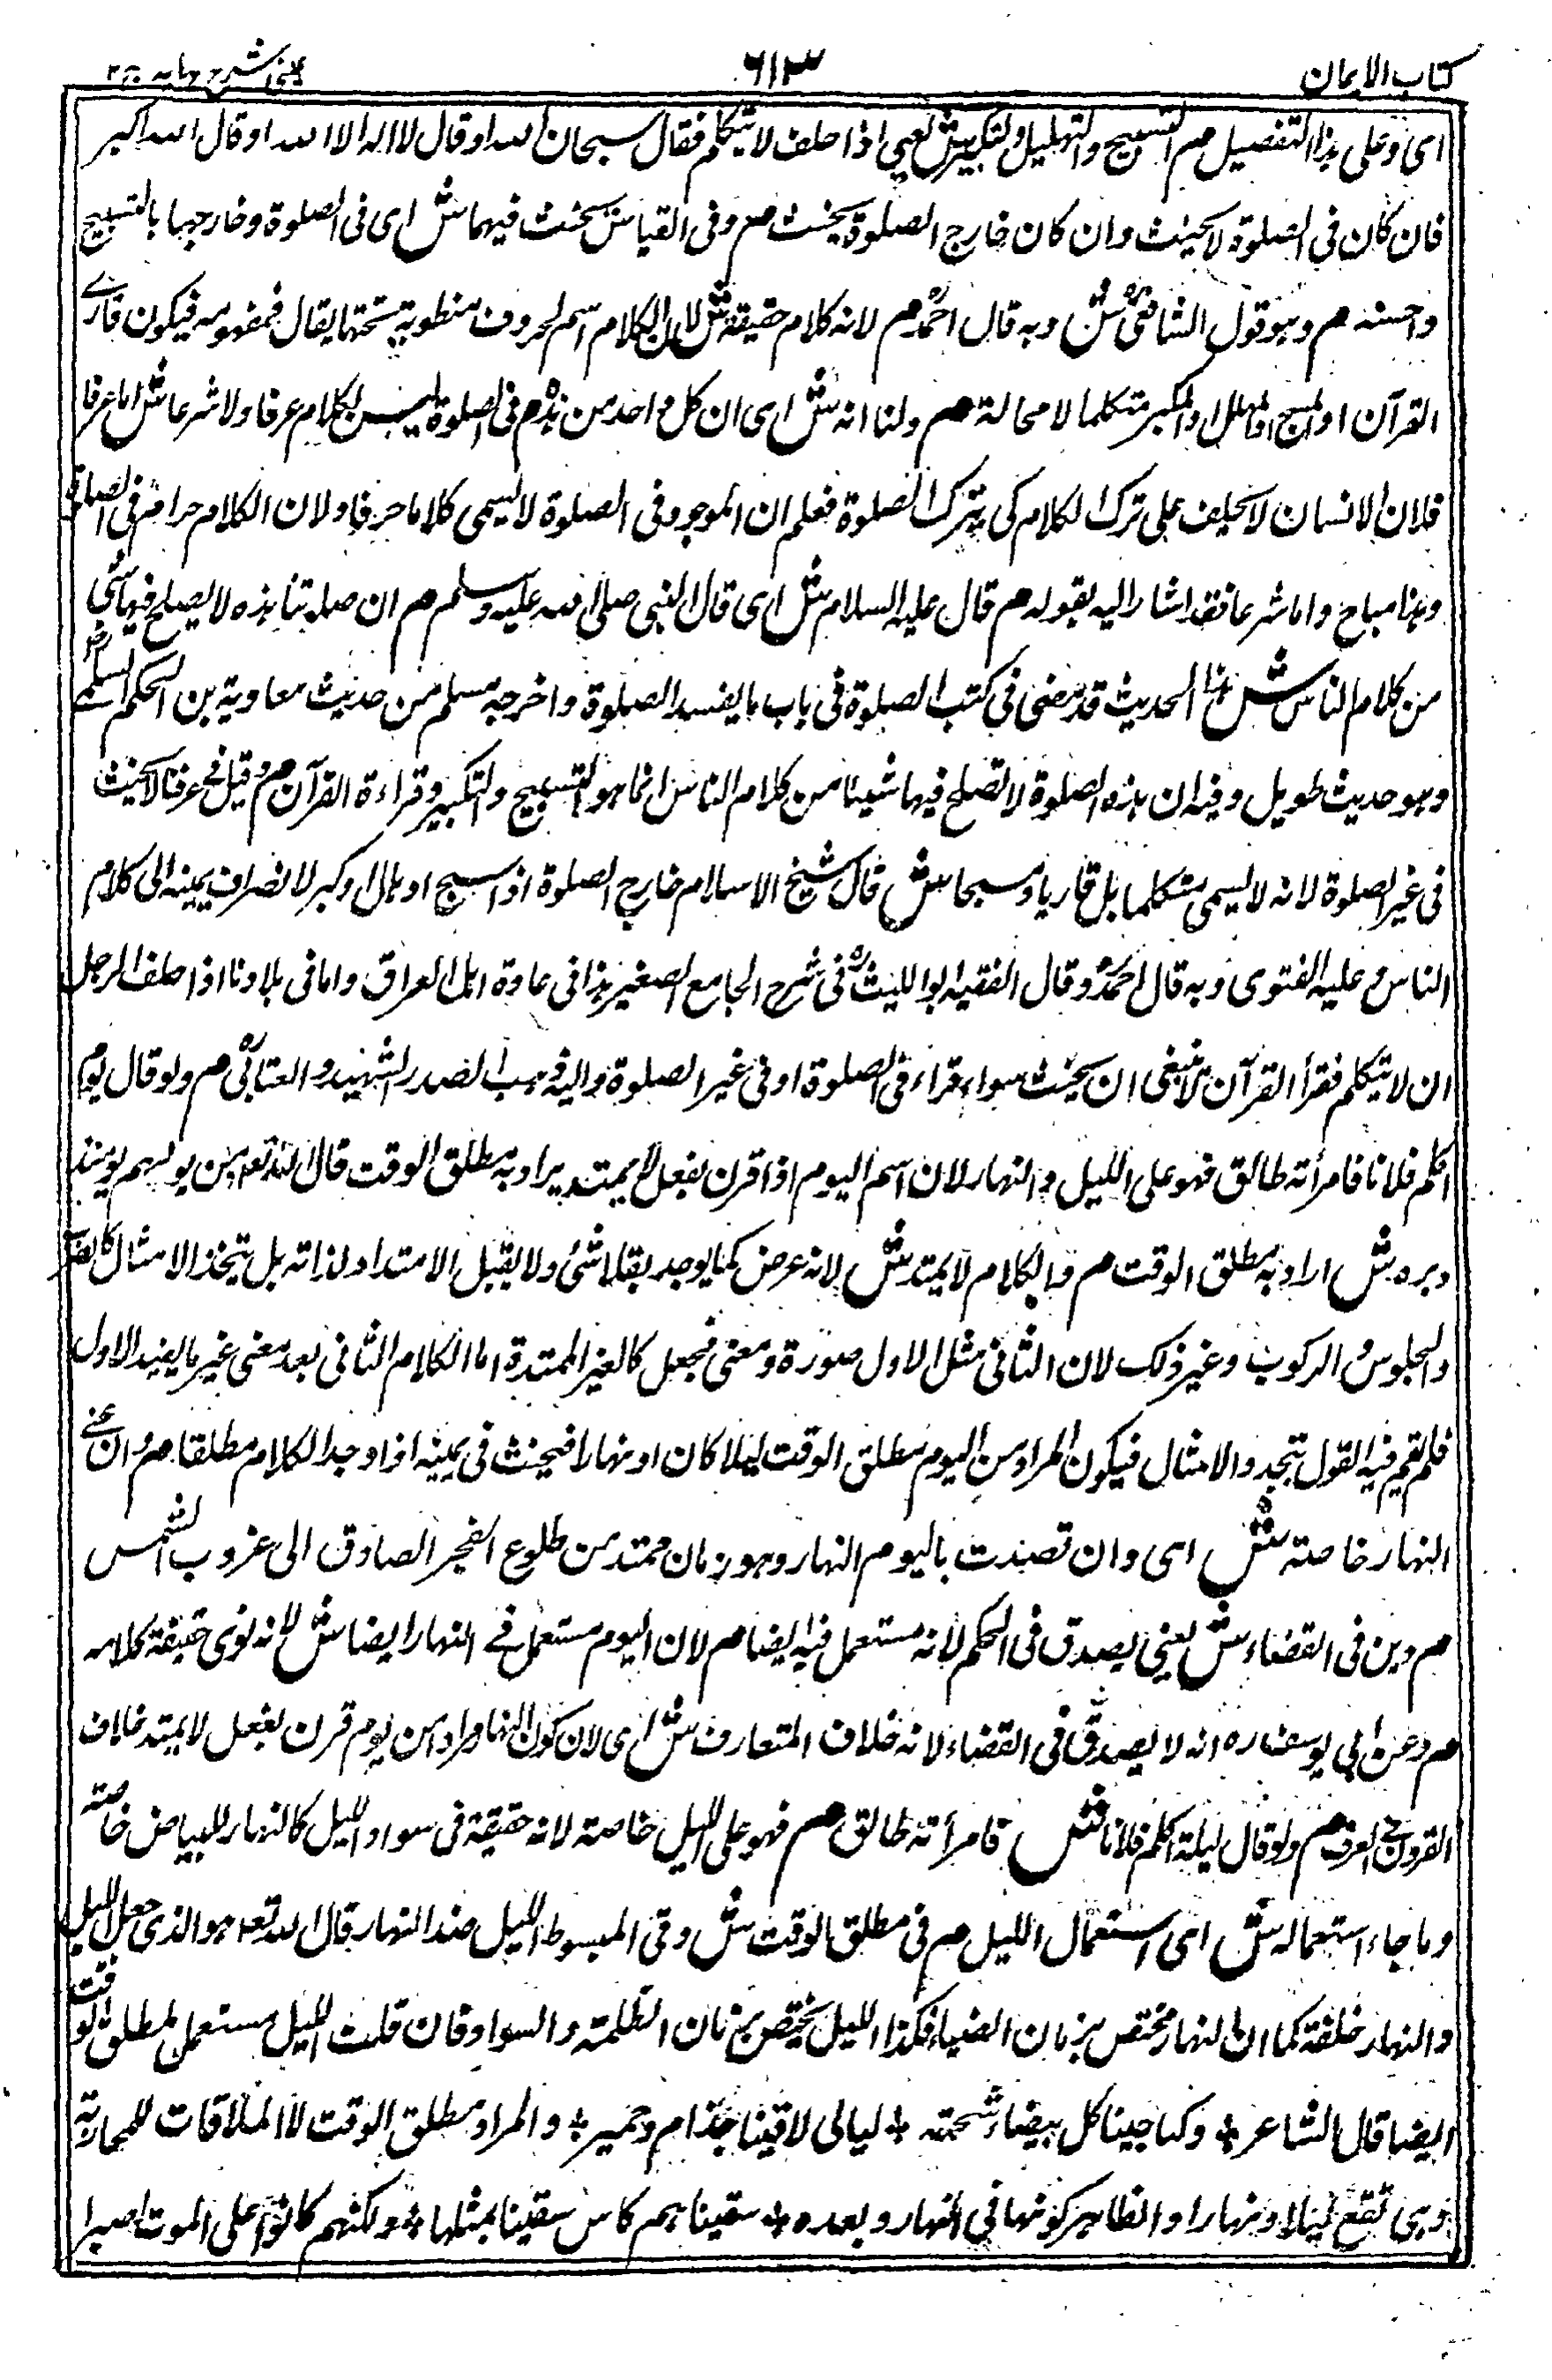 كتاب الايمان ٦١٣ عينى شرح هدايه ج٢
اى وعلى هذا التفصيل م التسبيح والتهليل والتكبير ش يعنى اذا حلف لا يتكلم فقال سبحان الله او قال لا اله الا الله او قال الله اكبر
فان كان فى الصلوة لا يحنث وان كان خارج الصلوة يحنث م وفى القياس يحنث فيهما ش اى فى الصلوة وخارجها بالتسبيح
واحسنه م وهو قول الشافعى ش وبه قال احمد م لانه كلام حقيقة ش لان الكلام اسم لحروف منظومة تحتها يقال فمفهوم فيكون قارى
القرآن او المسبح او المهلل او المكبر متكلما لا محالة م ولنا انه ش اى ان كل واحد من هذه م فى الصلوة ليس بكلام عرفا ولا شرعا ش اما عرفا
فلان الانسان لا يحلف على ترك الكلام كى يترك الصلوة فعلم ان الموجود فى الصلوة لا يسمى كلاما عرفا ولان الكلام حرام فى الصلوة
وهذا مباح واما شرعا فقد اشار اليه بقوله م قال عليه السلام ش اى قال النبى صلى الله عليه وسلم م ان صلوتنا هذه لا يصلح فيها شئ
من كلام الناس ش هذا الحديث قد مضى فى كتب الصلوة فى باب ما يفسد الصلوة واخرجه مسلم من حديث معاوية بن الحكم السلمى رض
وهو حديث طويل وفيه ان هذه الصلوة لا تصلح فيها شيئا من كلام الناس انما هو التسبيح والتكبير وقراءة القرآن م وقيل فى عرفنا لا يحنث
فى غير الصلوة لانه لا يسمى متكلما بل قاريا ومسبحا ش قال شيخ الاسلام خارج الصلوة اذا سبح او هلل او كبر لانصراف يمينه الى كلام
الناس وعليه الفتوى وبه قال احمد وقال الفقيه ابو الليث فى شرح الجامع الصغير هذا فى عادة اهل العراق واما فى بلادنا اذا حلف الرجل
ان لا يتكلم فقرأ القرآن لا ينبغى ان يحنث سواء قراء فى الصلوة او فى غير الصلوة واليه ذهب الصدر الشهيد والعتابى م ولو قال يوم
اكلم فلانا فامرأته طالق فهو على الليل والنهار لان اسم اليوم اذا قرن بفعل لا يمتد يراد به مطلق الوقت قال الله تع ومن يولهم يومئذ
دبره ش اراد به مطلق الوقت م والكلام لا يمتد ش لانه عرض كما يوجد يتلاشى ولا يقبل الامتداد لذاته بل يتخذ الامثال كالضرب
والجلوس والركوب وغير ذلك لان الثانى مثل الاول صورة ومعنى فجعل كالغير الممتدة اما الكلام الثانى بعد معنى غير ما يفيد الاول
فلم يقم فيه القول بتجدد الامثال فيكون المراد من اليوم مطلق الوقت ليلا كان او نهارا فيحنث فى يمينه اذا وجد الكلام مطلقا م وان عنى
النهار خاصة ش اى وان قصدت باليوم النهار وهو زمان ممتد من طلوع الفجر الصادق الى غروب الشمس
م دين فى القضاء ش يعنى يصدق فى الحكم لانه مستعمل فيه ايضا م لان اليوم مستعمل فى النهار ايضا ش لانه نوى حقيقة كلامه
م وعن ابى يوسف ره انه لا يصدق فى القضاء لانه خلاف المتعارف ش اى لان كون النهار مرادا من يوم قرن بفعل لا يمتد خلاف
القرون فى العرف م ولو قال ليلة اكلم فلانا ش فامرأته طالق م فهو على الليل خاصة لانه حقيقة فى سواد الليل كالنهار للبياض خاصة
وما جاء استعماله ش اى استعمال الليل م فى مطلق الوقت ش وفى المبسوط الليل ضد النهار قال الله تع وهو الذى جعل الليل
والنهار خلفة كما ان النهار مختص بزمان الضياء فكذا الليل يختص بزمان الظلمة والسواد فان قلت الليل مستعمل لمطلق الوقت
ايضا قال الشاعر ٭ وكنا حسبنا كل بيضاء شحمة ٭ ليالى لاقينا جذام وحمير ٭ والمراد مطلق الوقت لا الملاقات للمحاربة
وهى تقع ليلا ونهارا والظاهر كونها فى النهار وبعده ٭ سقيناهم كاس سقينا بمثلها ٭ ولكنهم كانوا على الموت اصبرا